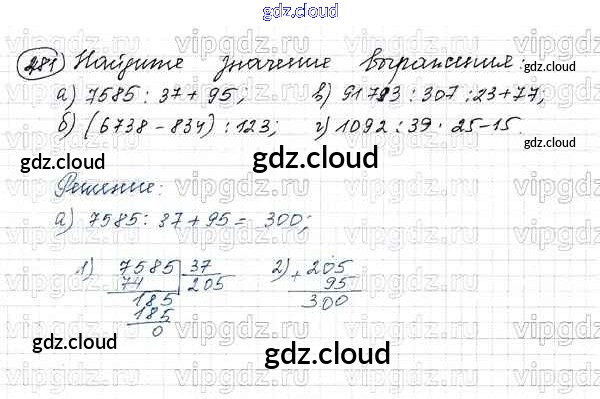 gdz.cloud
281) Найдите значение выражения:
а) 7585 : 37 + 95; в) 91793 : 307 : 23 + 77;
б) (6738 - 834) : 123; г) 1092 : 39 · 25 - 15.
Решение:
а) 7585 : 37 + 95 = 300;
1) 7585 | 37 2) + 205
74 205 95
185 300
185
0
gdz.cloud
gdz.cloud
gdz.cloud
gdz.cloud
gdz.cloud
gdz.cloud
gdz.cloud
gdz.cloud
vipgdz.ru